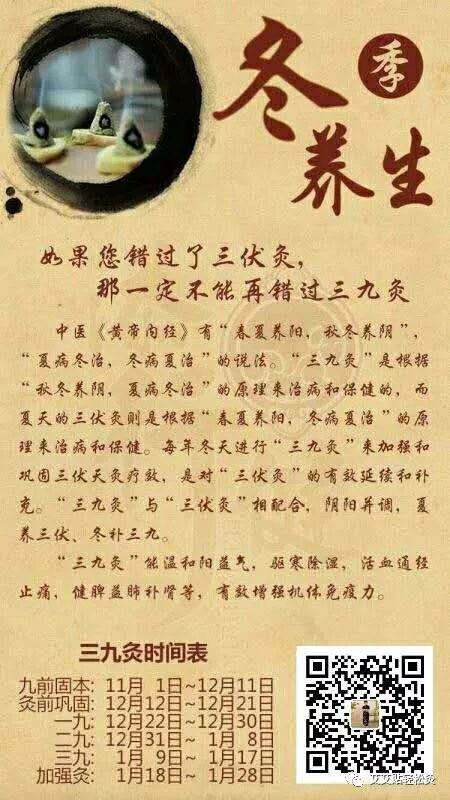 冬季
养生
如果您错过了三伏灸，
那一定不能再错过三九灸
中医《黄帝内经》有“春夏养阳，秋冬养阴”，
“夏病冬治，冬病夏治”的说法。“三九灸”是根据
“秋冬养阴，夏病冬治”的原理来治病和保健的，而
夏天的三伏灸则是根据“春夏养阳，冬病夏治”的原
理来治病和保健。每年冬天进行“三九灸”来加强和
巩固三伏天灸疗效，是对“三伏灸”的有效延续和补
充。“三九灸”与“三伏灸”相配合，阴阳并调，夏
养三伏、冬补三九。
“三九灸”能温和阳益气，驱寒除湿，活血通经
止痛，健脾益肺补肾等，有效增强机体免疫力。
三九灸时间表
九前固本: 11月 1日~12月11日
灸前巩固: 12月12日~12月21日
一九: 12月22日~12月30日
二九: 12月31日~ 1月 8日
三九: 1月 9日~ 1月17日
加强灸: 1月18日~ 1月28日
艾艾贴轻松灸